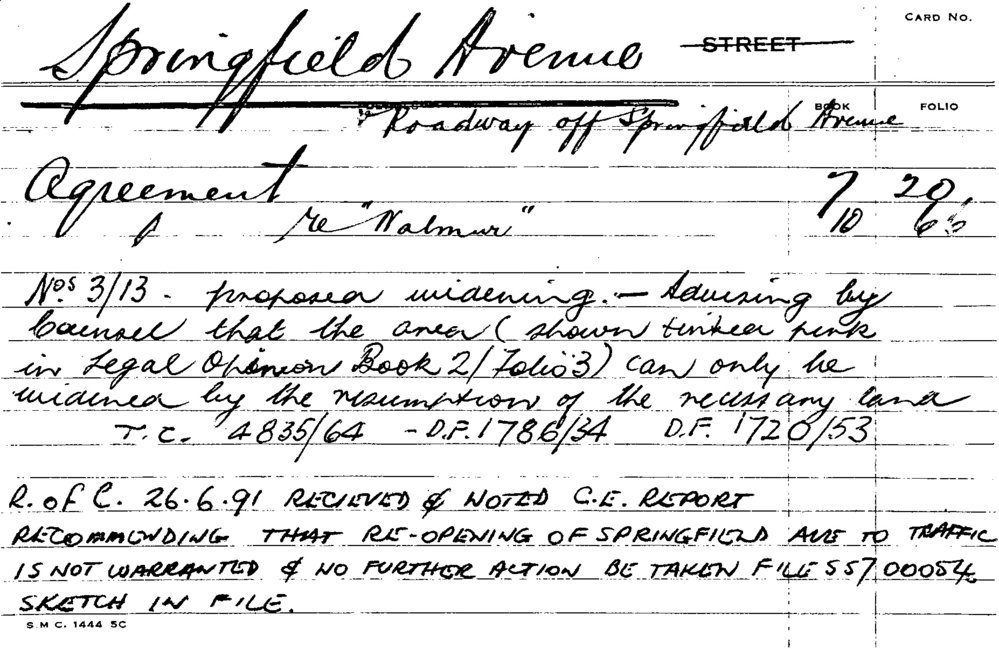 CARD No.
Springfield Avenue STREET
BOOK FOLIO
Roadway off Springfield Avenue
Agreement 7 20
re "Walmur" 10 66
Nos 3/13 - proposed widening. - Advising by
Counsel that the area (shown tinted pink
in Legal Opinion Book 2/Folio 3) can only be
widened by the resumption of the necessary land
T.C. 4835/64 - D.F. 1786/34 D.F. 1720/53
R. OF C. 26.6.91 RECIEVED & NOTED C.E. REPORT
RECOMMENDING THAT RE-OPENING OF SPRINGFIELD AVE TO TRAFFIC
IS NOT WARRANTED & NO FURTHER ACTION BE TAKEN FILE SS7 00054
SKETCH IN FILE.
S.M.C. 1444 5C